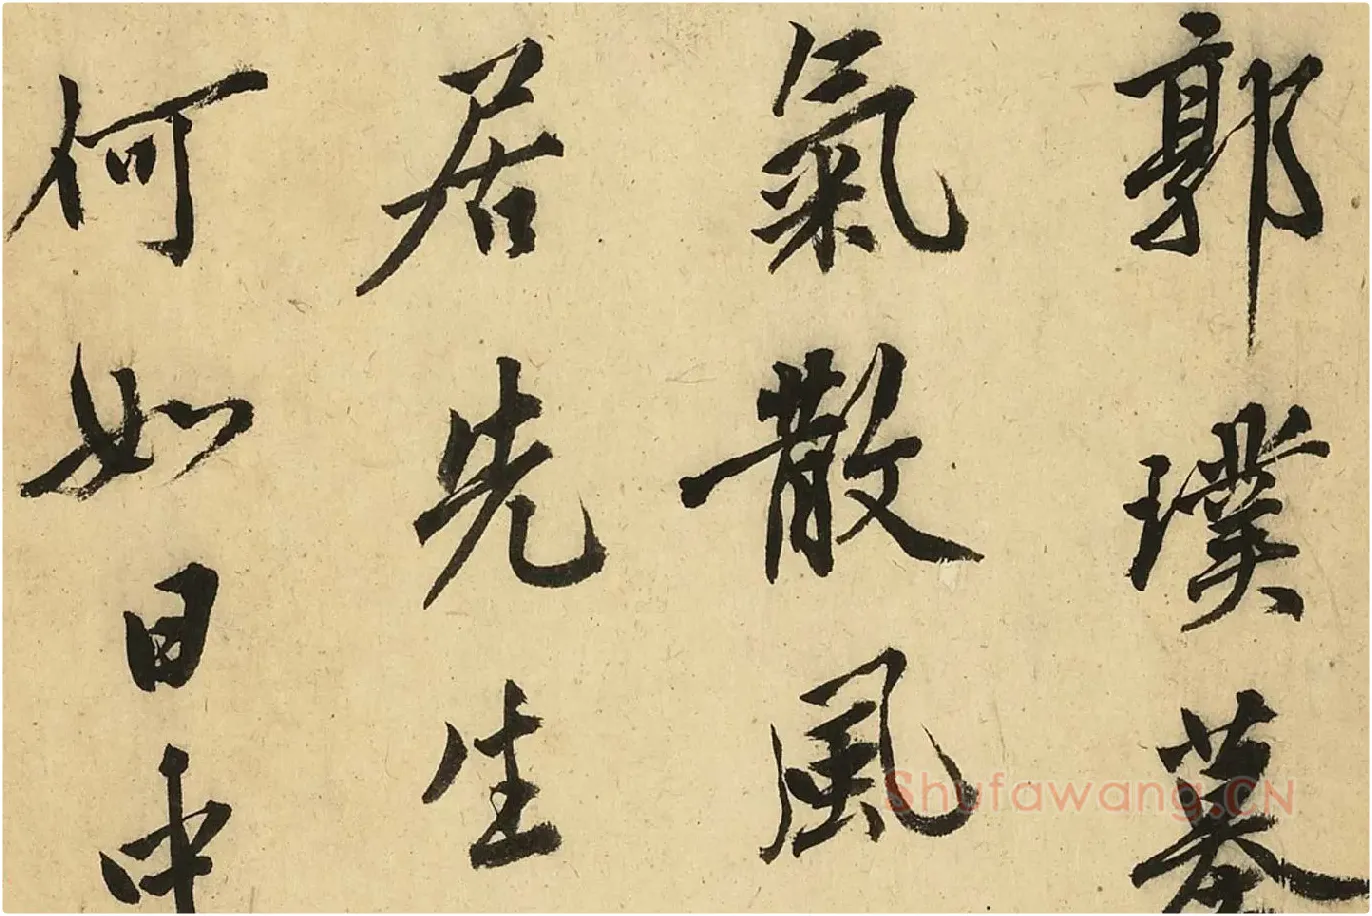 郭璞墓
氣散風
居先生
何如日中
Shufawang.CN